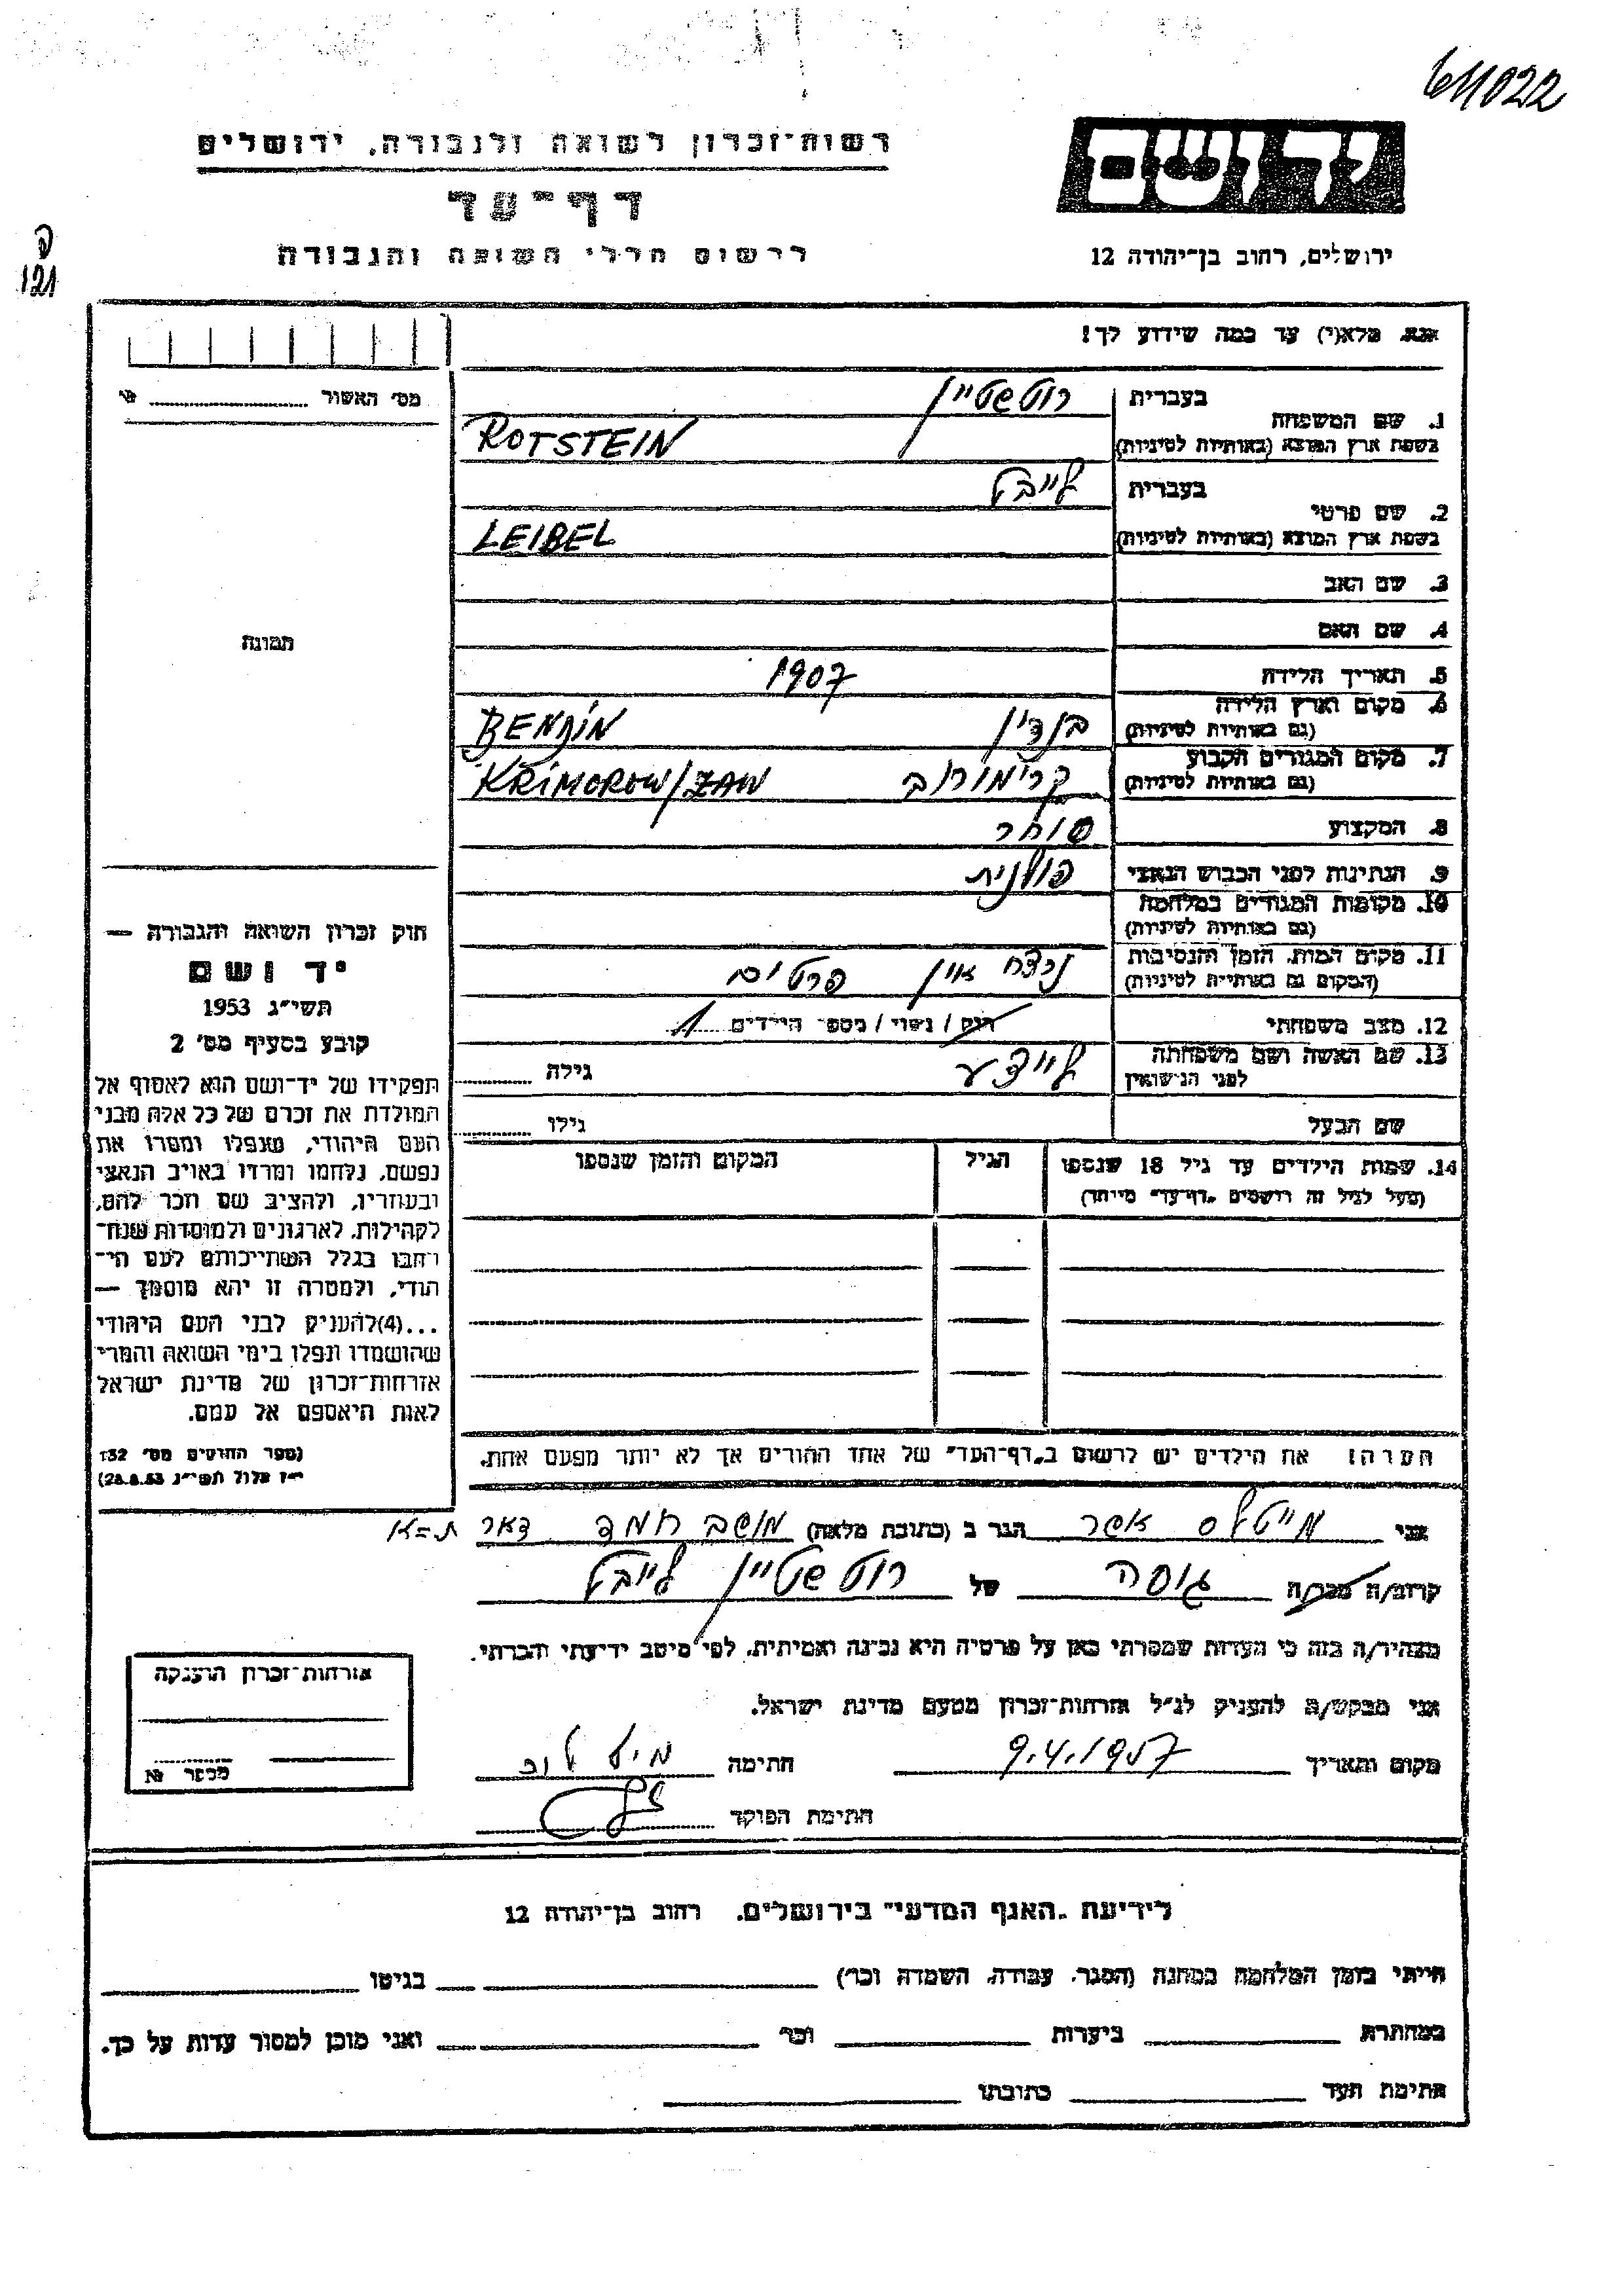 611022
רשות־זכרון לשואה ולגבורה, ירושלים
יד ושם
דף־עד
לרישום חללי השואה והגבורה
ירושלים, רחוב בן־יהודה 12
121
אנא, מלא(י) עד כמה שידוע לך!
מס׳ האשור
1. שם המשפחה
בעברית
רוטשטיין
בשפת ארץ המוצא (באותיות לטיניות)
ROTSTEIN
2. שם פרטי
בעברית
לייבל
בשפת ארץ המוצא (באותיות לטיניות)
LEIBEL
3. שם האב
4. שם האם
תמונה
5. תאריך הלידה
1907
6. מקום וארץ הלידה
(גם באותיות לטיניות)
בנדין BENDIN
7. מקום המגורים הקבוע
(גם באותיות לטיניות)
קרימורוב KRIMOROW/ZAW
8. המקצוע
סוחר
9. הנתינות לפני הכבוש הנאצי
פולנית
10. מקומות המגורים במלחמה
(גם באותיות לטיניות)
11. מקום המות, הזמן והנסיבות
(המקום גם באותיות לטיניות)
נרצח אין פרטים
12. מצב משפחתי
רווק / נשוי / מספר הילדים 1
13. שם האשה ושם משפחתה
לפני הנישואין
גילה
שם הבעל
גילו
14. שמות הילדים עד גיל 18 שנספו
(מעל לגיל זה רושמים ״דף־עד״ מיוחד)
הגיל
המקום והזמן שנספו
חוק זכרון השואה והגבורה —
יד ושם
תשי״ג 1953
קובע בסעיף מס׳ 2
תפקידו של יד־ושם הוא לאסוף אל
המולדת את זכרם של כל אלה מבני
העם היהודי, שנפלו ומסרו את
נפשם, נלחמו ומרדו באויב הנאצי
ובעוזריו, ולהציב שם וזכר להם,
לקהילות, לארגונים ולמוסדות שנח־
רבו בגלל השתייכותם לעם הי־
הודי, ולמטרה זו יהא מוסמך —
...(4)להעניק לבני העם היהודי
שהושמדו ונפלו בימי השואה והמרי
אזרחות־זכרון של מדינת ישראל
לאות היאספם אל עמם.
(ספר החוקים מס׳ 132
י״ז אלול תשי״ג 28.8.53)
הערה! את הילדים יש לרשום ב״דף־העד״ של אחד ההורים אך לא יותר מפעם אחת.
אני מייטלס אשר הגר ב (כתובת מלאה) מושב חמד דאר ת־א
קרוב/ה מכר/ה גיסה של רוטשטיין לייבל
מצהיר/ה בזה כי העדות שמסרתי כאן על פרטיה היא נכונה ואמיתית, לפי מיטב ידיעתי והכרתי.
אני מבקש/ת להעניק לנ״ל אזרחות־זכרון מטעם מדינת ישראל.
מקום ותאריך 9.4.1957 חתימה
חתימת הפוקד
אזרחות־זכרון הוענקה
מספר №
לידיעת ״האגף המדעי״ בירושלים, רחוב בן־יהודה 12
הייתי בזמן המלחמה במחנה (הסגר, עבודה, השמדה וכו׳) בגיטו
במחתרת ביערות וכו׳ ואני מוכן למסור עדות על כך.
חתימת העד כתובתו